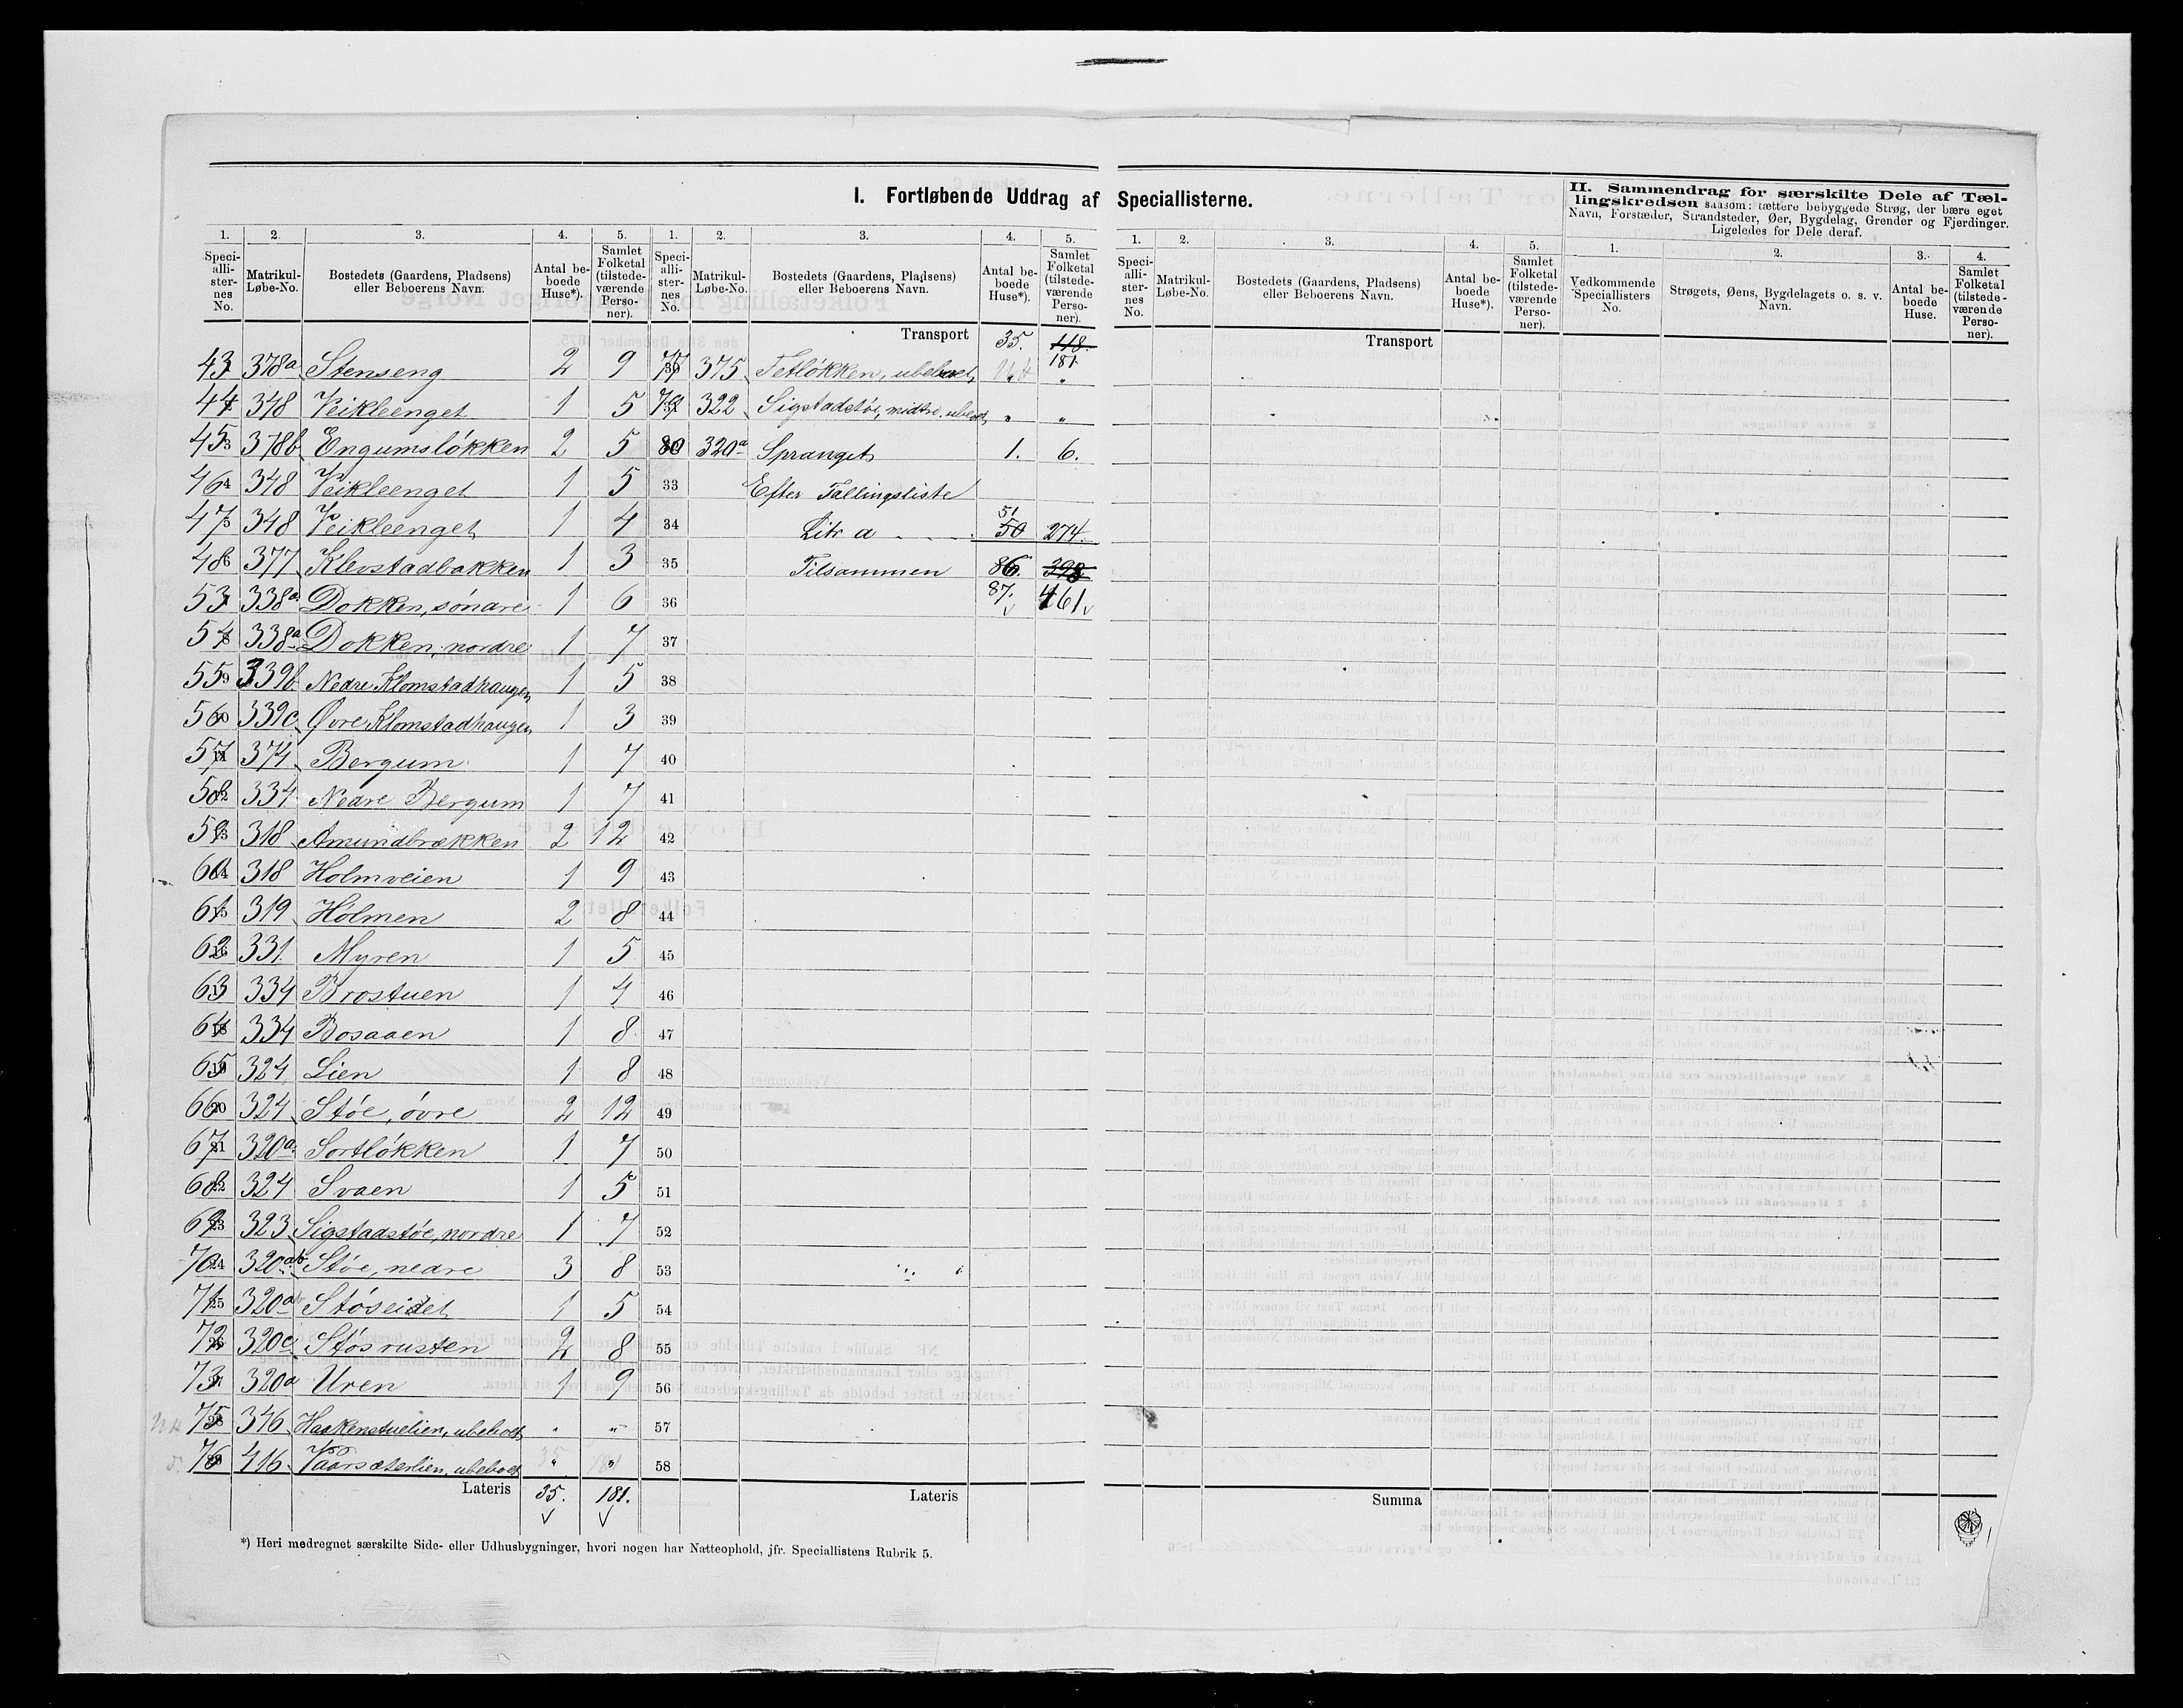 I. Fortløbende Uddrag af Speciallisterne.
II. Sammendrag for særskilte Dele af Tællingskredsen saasom: tættere bebyggede Strøg, der bære eget
Navn, Forstæder, Strandsteder, Øer, Bygdelag, Grender og Fjerdinger.
Ligeledes for Dele deraf.
1. 2. 3. 4. 5.
Speciallisternes No. Matrikul-Løbe-No. Bostedets (Gaardens, Pladsens) eller Beboerens Navn. Antal beboede Huse*). Samlet Folketal (tilstedeværende Personer).
43 378a Stenseng 2 9
44 348 Veikleenget 1 5
45 378b Engumsløkken 2 5
46 348 Veikleenget 1 5
47 348 Veikleenget 1 4
48 377 Klevstadbakken 1 3
53 338a Dokken, søndre 1 6
54 338a Dokken, nordre 1 7
55 339b Nedre Klomstadhaugen 1 5
56 339c Øvre Klomstadhaugen 1 3
57 374 Bergum 1 7
58 334 Nedre Bergum 1 7
59 318 Amundbrækken 2 12
60 318 Holmveien 1 9
61 319 Holmen 2 8
62 331 Myren 1 5
63 334 Brostuen 1 4
64 334 Bosaaen 1 8
65 324 Lien 1 8
66 324 Støe, øvre 2 12
67 320a Sortløkken 1 7
68 324 Svaen 1 5
69 323 Sigstadstøe, nordre 1 7
70 320ab Støe, nedre 3 8
71 320a Støseidet 1 5
72 320c Støsrusten 2 8
73 320a Uren 1 9
75 346 Haakenstuelien, ubeboet " "
76 416 Vaarsæterlien, ubeboet " "
Lateris 35. 181.
*) Heri medregnet særskilte Side- eller Udhusbygninger, hvori nogen har Natteophold, jfr. Speciallistens Rubrik 5.
1. 2. 3. 4. 5.
Speciallisternes No. Matrikul-Løbe-No. Bostedets (Gaardens, Pladsens) eller Beboerens Navn. Antal beboede Huse*). Samlet Folketal (tilstedeværende Personer).
Transport 35. 118.
181.
77 375 Tetløkken, ubeboet "
79 322 Sigstadstøe, midtre, ubeboet " "
80 320a Spranget 1. 6.
33 Efter Tællingsliste
51
34 Litr a 50 274.
35 Tilsammen 86. 398
36 87. 461
37
38
39
40
41
42
43
44
45
46
47
48
49
50
51
52
53
54
55
56
57
58
Lateris
1. 2. 3. 4. 5.
Speciallisternes No. Matrikul-Løbe-No. Bostedets (Gaardens, Pladsens) eller Beboerens Navn. Antal beboede Huse*). Samlet Folketal (tilstedeværende Personer).
Transport
Summa
1. 2. 3. 4.
Vedkommende Speciallisters No. Strøgets, Øens, Bygdelagets o. s. v. Navn. Antal beboede Huse. Samlet Folketal (tilstedeværende Personer).